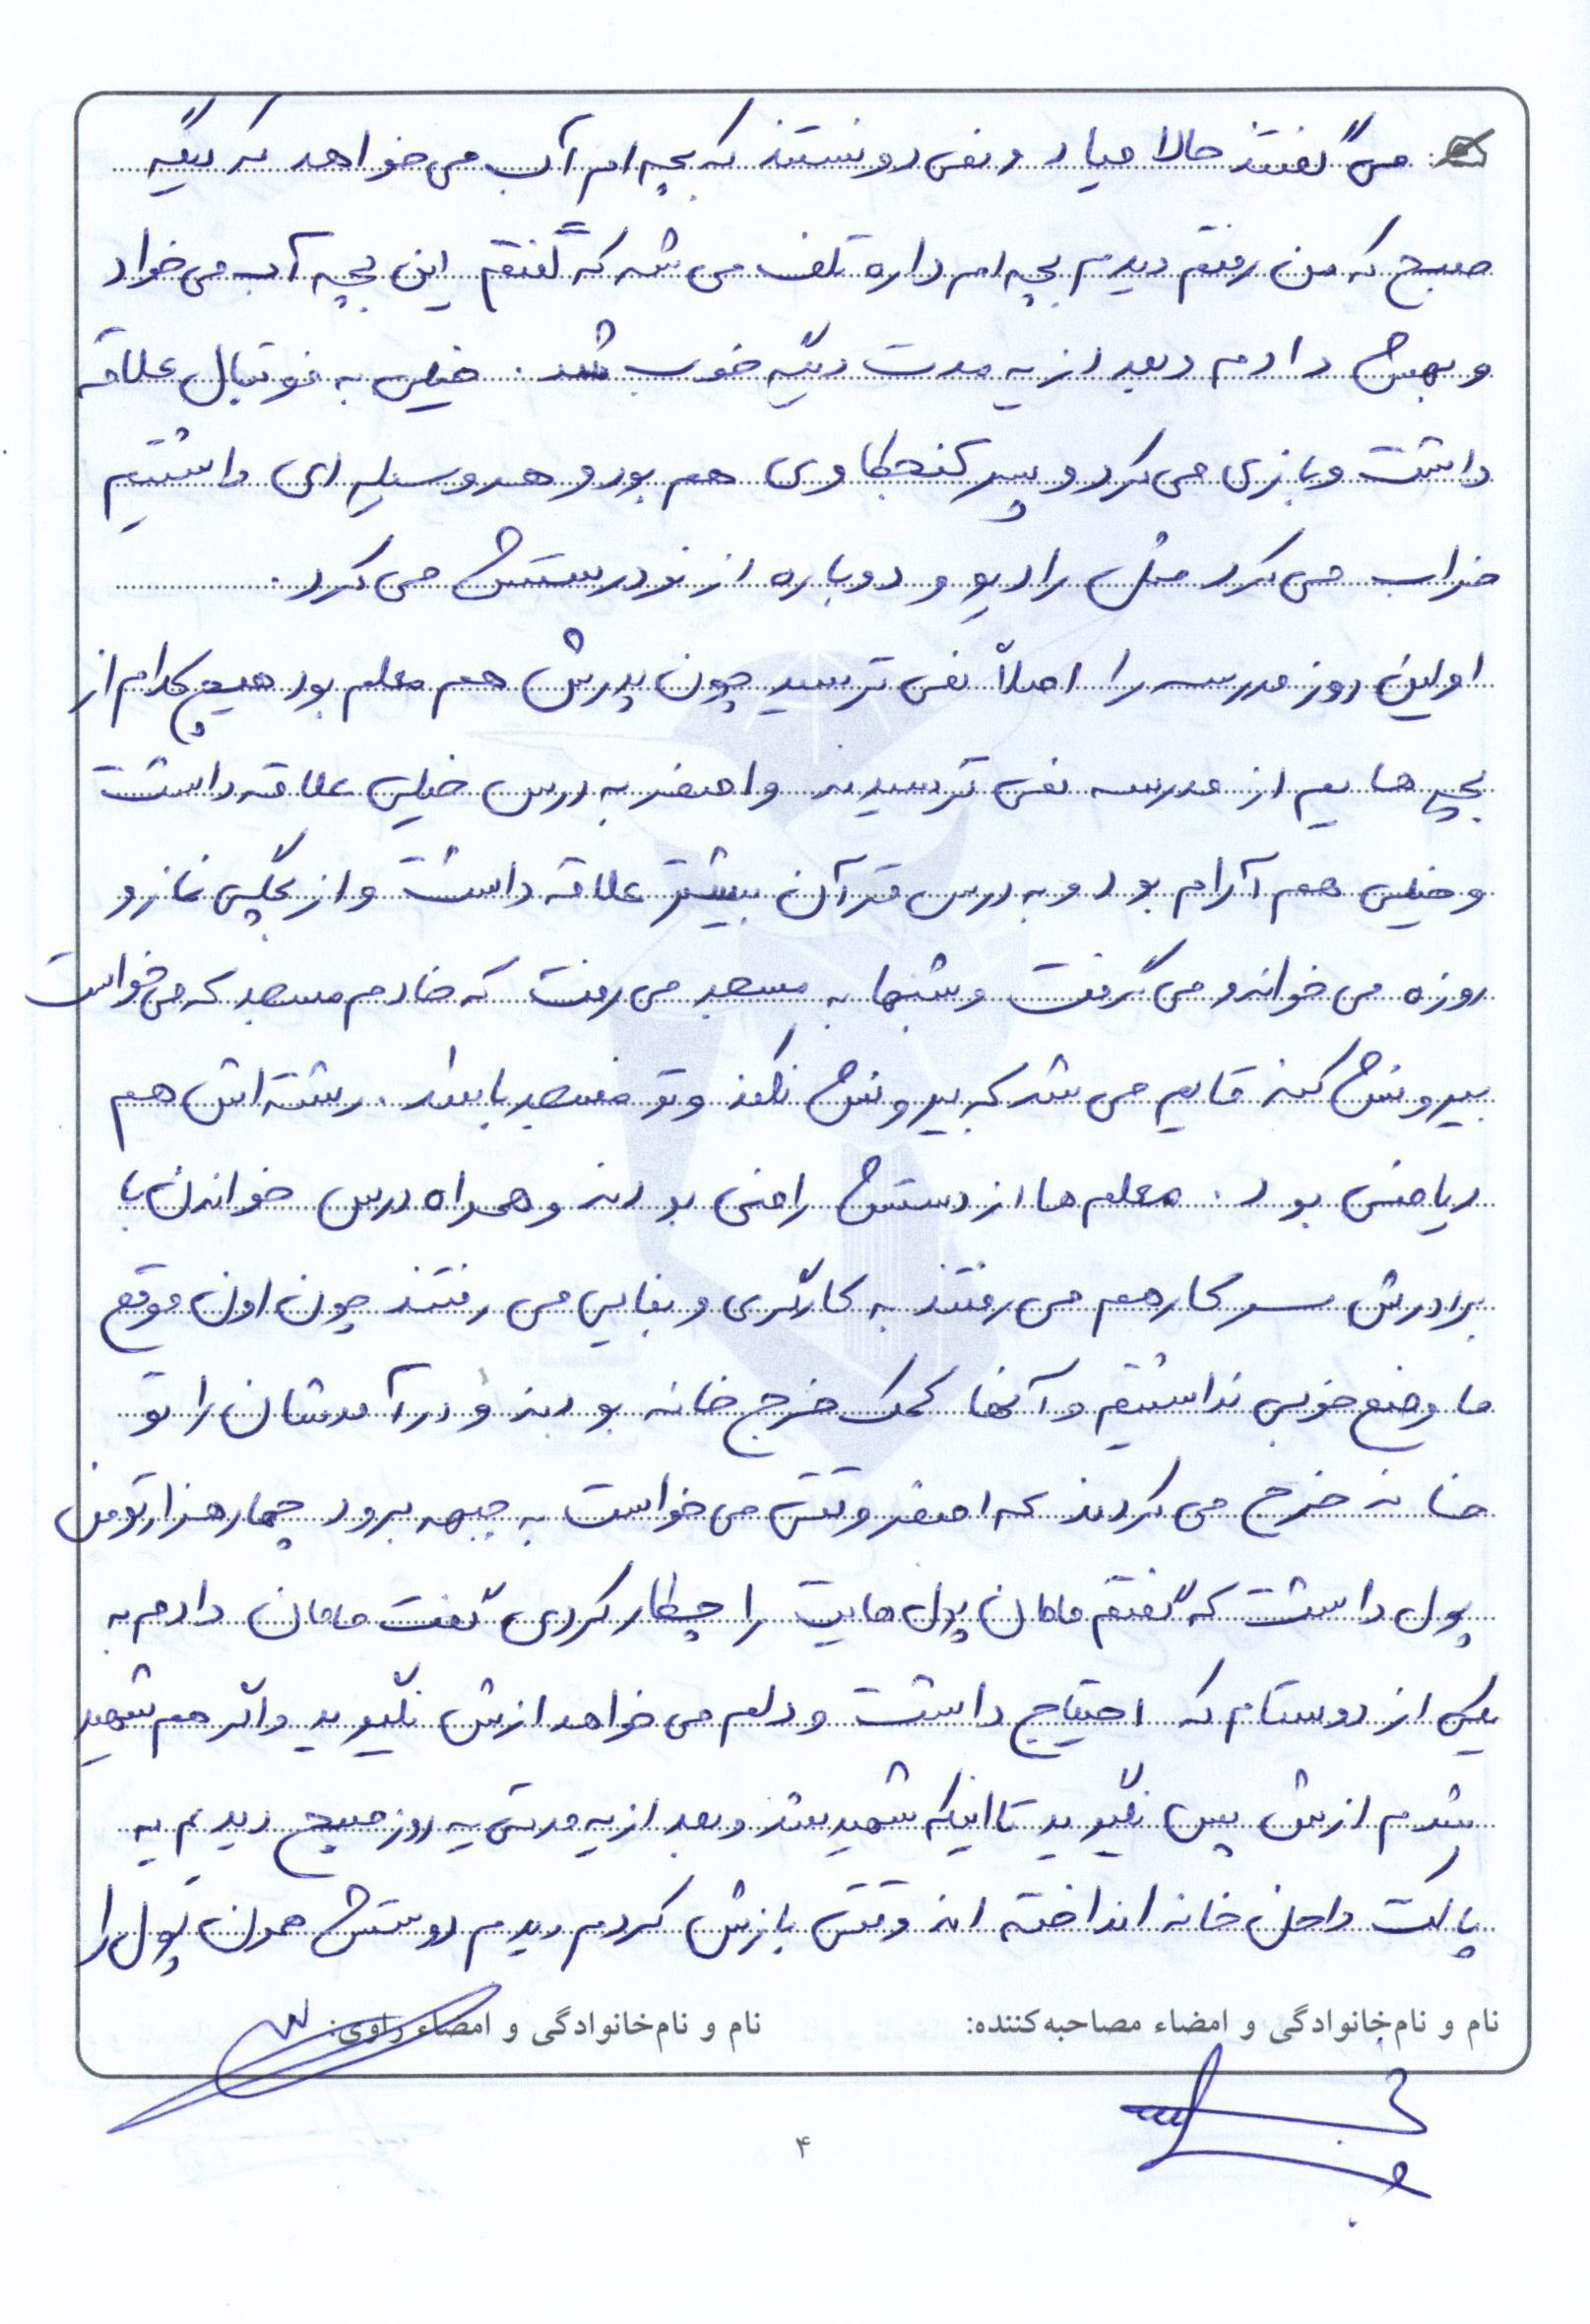 می گفتند حالا میاد و نمی دونستند که بچه ام آب می خواهد که دیگه
صبح که من رفتم دیدم بچه ام داره تلف می شه که گفتم این بچه آب می خواد
و بهش دادم و بعد از یه مدت دیگه خوب شد. خیلی به فوتبال علاقه
داشت و بازی می کرد و پسر کنجکاوی هم بود و هر وسیله ای داشتیم
خراب می کرد مثل رادیو و دوباره از نو درستش می کرد.
اولین روز مدرسه را اصلاً نمی ترسید چون پدرش هم معلم بود هیچ کدام از
بچه هایم از مدرسه نمی ترسیدند و اصغر به درس خیلی علاقه داشت
و خیلی هم آرام بود و به درس قرآن بیشتر علاقه داشت و از بچگی نماز و
روزه می خواند و می گرفت و شبها به مسجد می رفت که خادم مسجد که می خواست
بیرونش کند قایم می شد که بیرونش نکند و تو مسجد باشد. رشته اش هم
ریاضی بود. معلم ها از دستش راضی بودند و همراه درس خواندن با
برادرش سر کار هم می رفتند به کارگری و بنایی می رفتند چون اون موقع
ما وضع خوبی نداشتیم و آنها کمک خرج خانه بودند و درآمدشان را تو
خانه خرج می کردند که اصغر وقتی می خواست به جبهه برود چهار هزار تومن
پول داشت که گفتم مامان پول هایت را چطار کردی گفت مامان دادم به
یکی از دوستام که احتیاج داشت و دلم می خواهد ازش نگیرید و اگر هم شهید
شدم ازش پس نگیرید تا اینکه شهید شد و بعد از یه مدتی یه روز صبح دیدم یه
پاکت داخل خانه انداخته اند وقتی بازش کردم دیدم دوستش همون پول را
نام و نام‌خانوادگی و امضاء مصاحبه‌کننده:
نام و نام‌خانوادگی و امضاء راوی:
۴